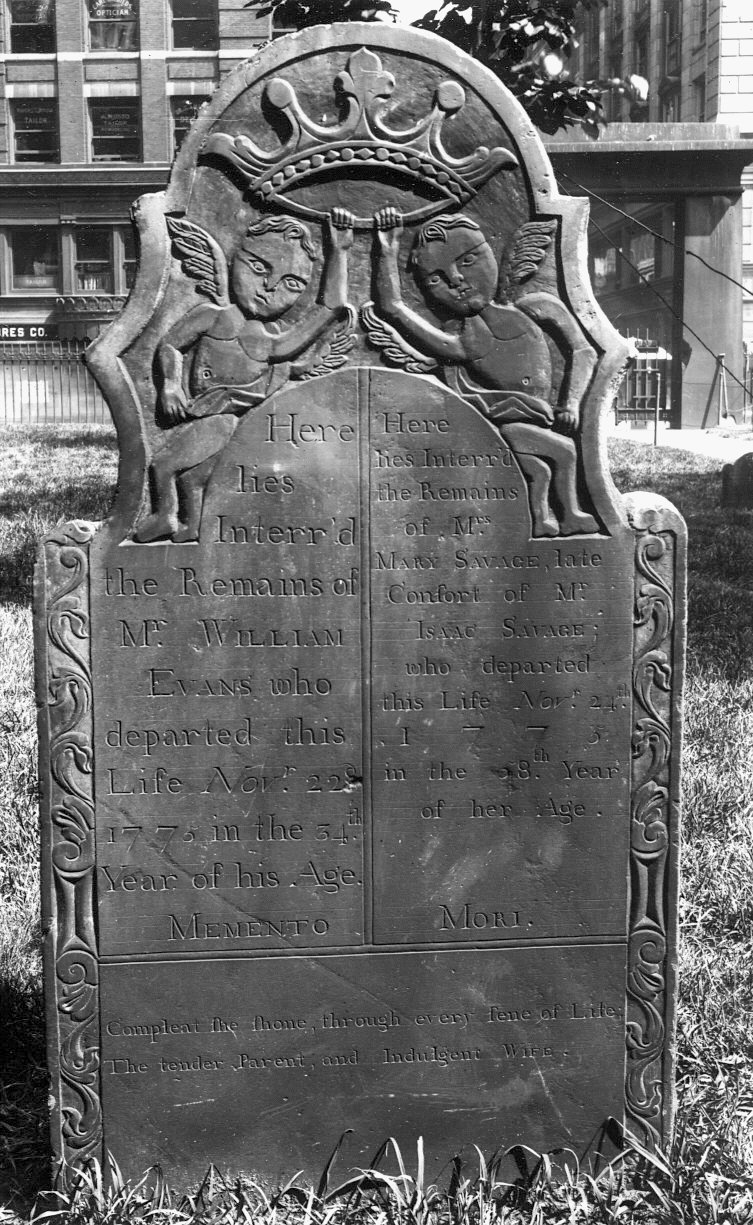 OPTICIAN
TAILOR
TAILOR
RES CO.
Here
lies
Interr'd
the Remains of
Mr. WILLIAM
EVANS who
departed this
Life Novr. 22d
1775 in the 34th.
Year of his Age.
MEMENTO
Here
lies Interr'd
the Remains
of Mrs
MARY SAVAGE, late
Conſort of Mr
ISAAC SAVAGE;
who departed
this Life Novr. 24th.
1775.
in the 28th. Year
of her Age.
MORI.
Compleat ſhe ſhone, through every ſene of Life;
The tender Parent, and Indulgent WIFE.